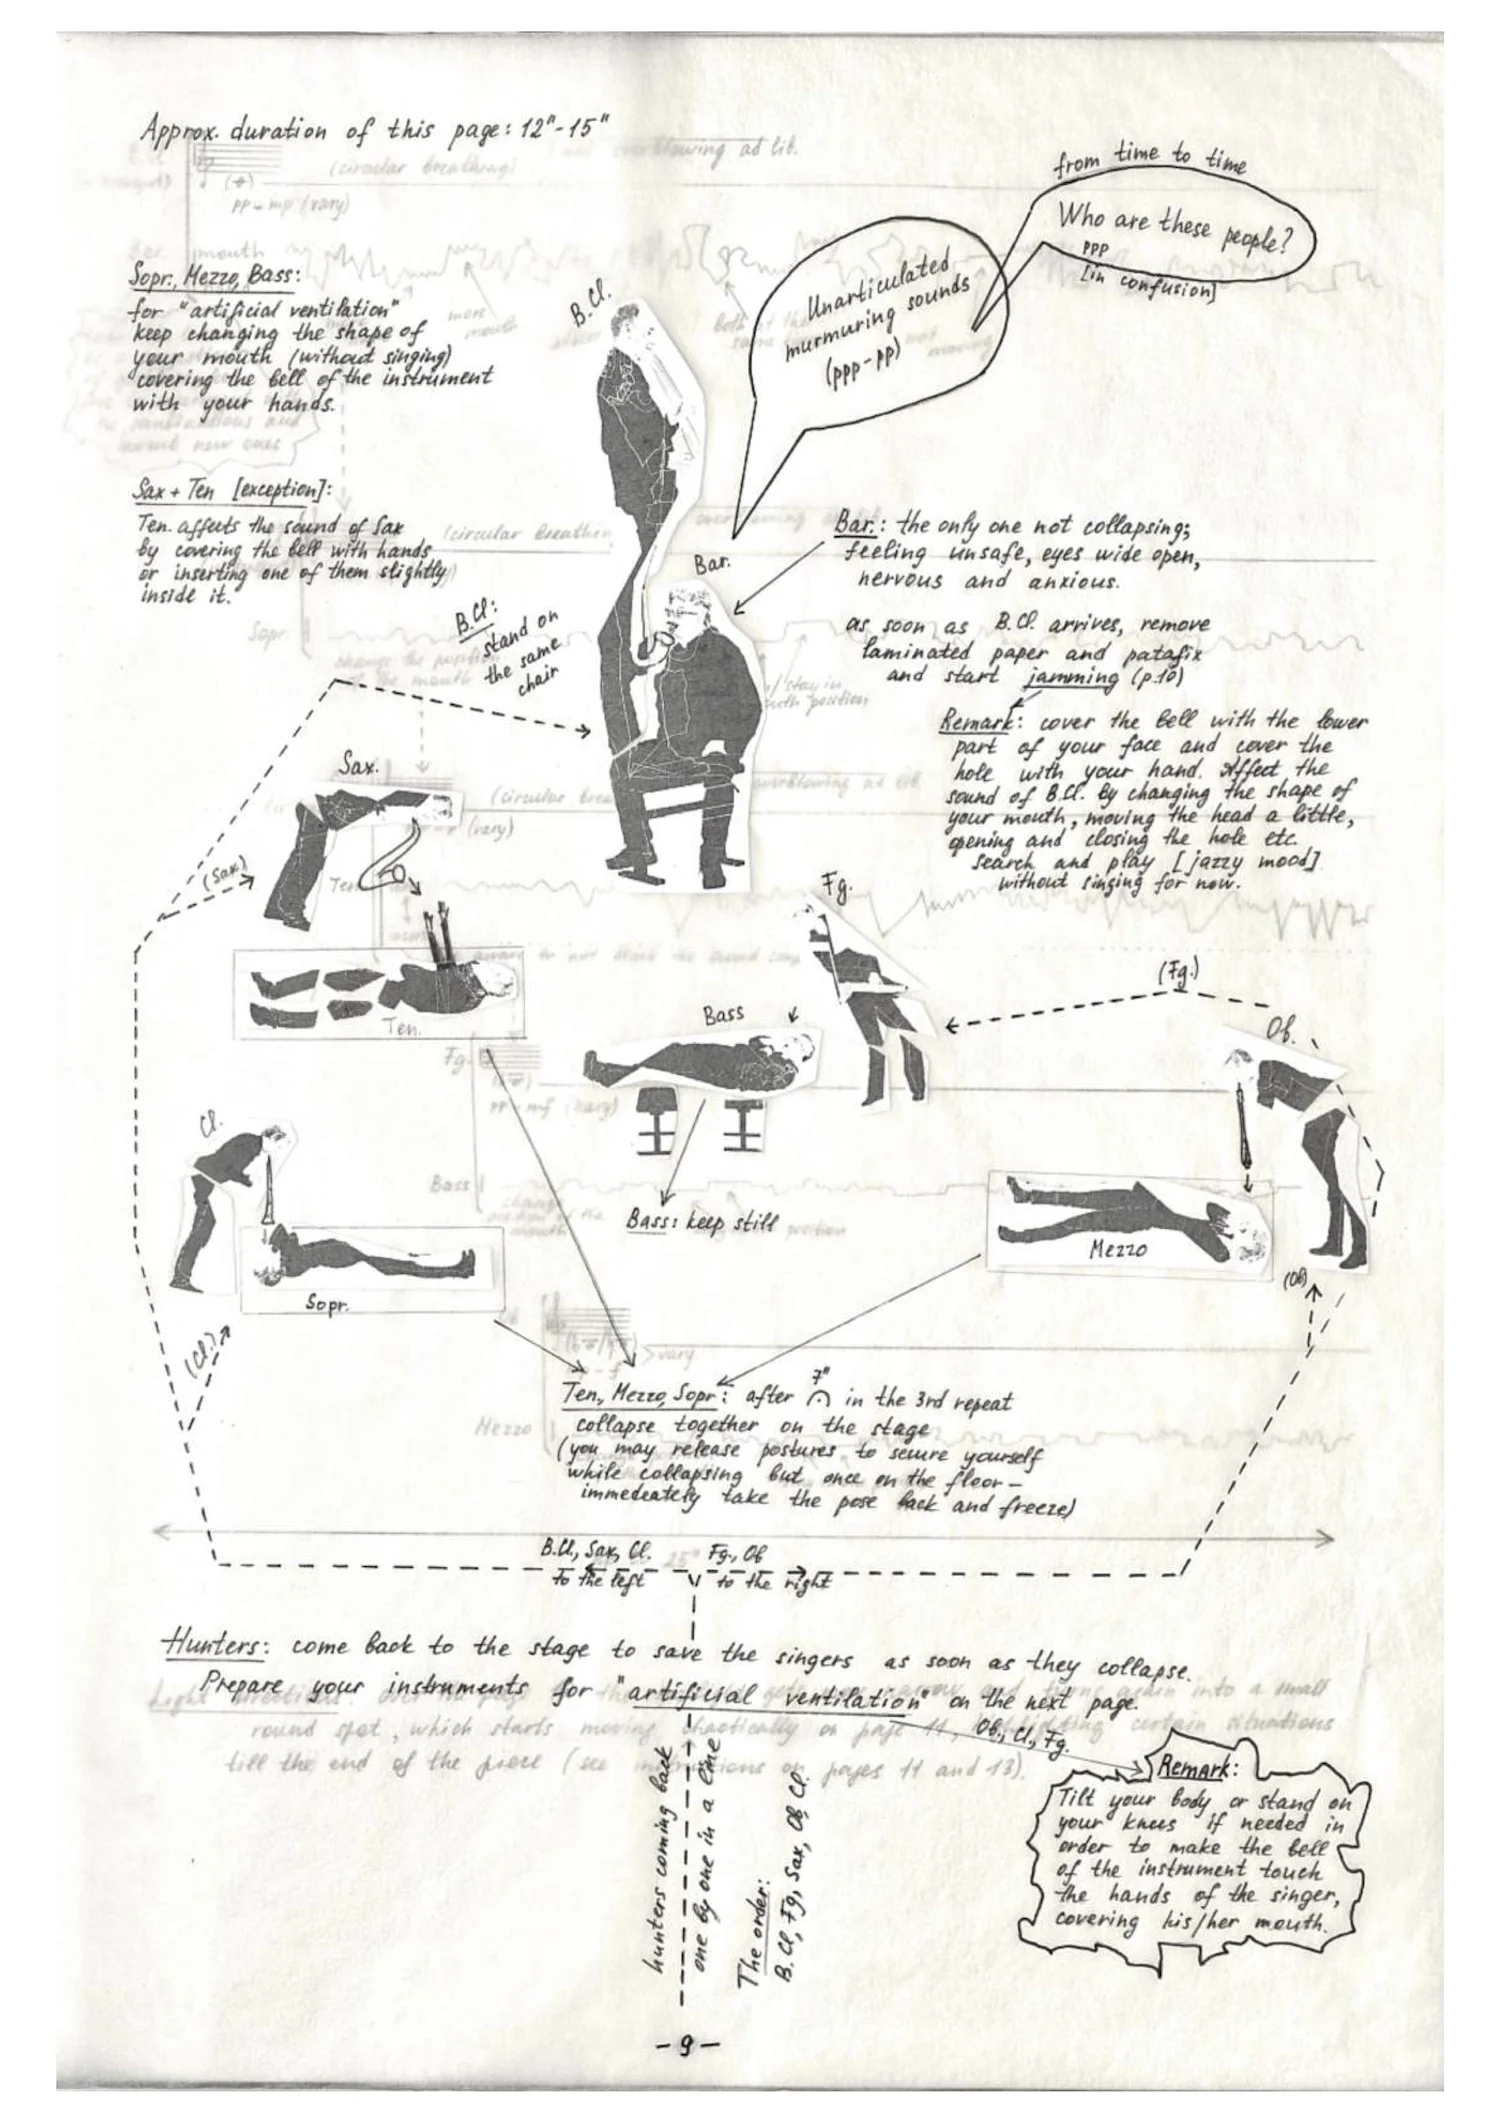 Approx. duration of this page: 12"-15"
from time to time
Who are these people?
ppp
[in confusion]
Unarticulated
murmuring sounds
(ppp-pp)
Sopr., Mezzo, Bass:
for "artificial ventilation"
keep changing the shape of
your mouth (without singing)
covering the bell of the instrument
with your hands.
B.Cl.
Sax + Ten [exception]:
Ten. affects the sound of Sax
by covering the bell with hands
or inserting one of them slightly
inside it.
Bar.
Bar.: the only one not collapsing;
feeling unsafe, eyes wide open,
nervous and anxious.
as soon as B.Cl. arrives, remove
laminated paper and patafix
and start jamming (p.10)
B.Cl:
stand on
the same
chair
Remark: cover the bell with the lower
part of your face and cover the
hole with your hand. Affect the
sound of B.Cl. by changing the shape of
your mouth, moving the head a little,
opening and closing the hole etc.
Search and play [jazzy mood]
without singing for now.
Sax.
(Sax)
Ten.
Fg.
(Fg.)
Bass
Ob.
Cl.
Bass: keep still
Mezzo
Sopr.
(Ob)
(Cl.)
Ten., Mezzo, Sopr.: after 7" in the 3rd repeat
collapse together on the stage
(you may release postures to secure yourself
while collapsing but once on the floor-
immedeately take the pose back and freeze)
B.Cl., Sax, Cl.
to the left
Fg., Ob
to the right
Hunters: come back to the stage to save the singers as soon as they collapse.
Prepare your instruments for "artificial ventilation" on the next page.
Ob., Cl., Fg.
hunters coming back
one by one in a line
The order:
B.Cl, Fg, Sax, Ob, Cl.
Remark:
Tilt your body or stand on
your knees if needed in
order to make the bell
of the instrument touch
the hands of the singer,
covering his/her mouth.
-9-